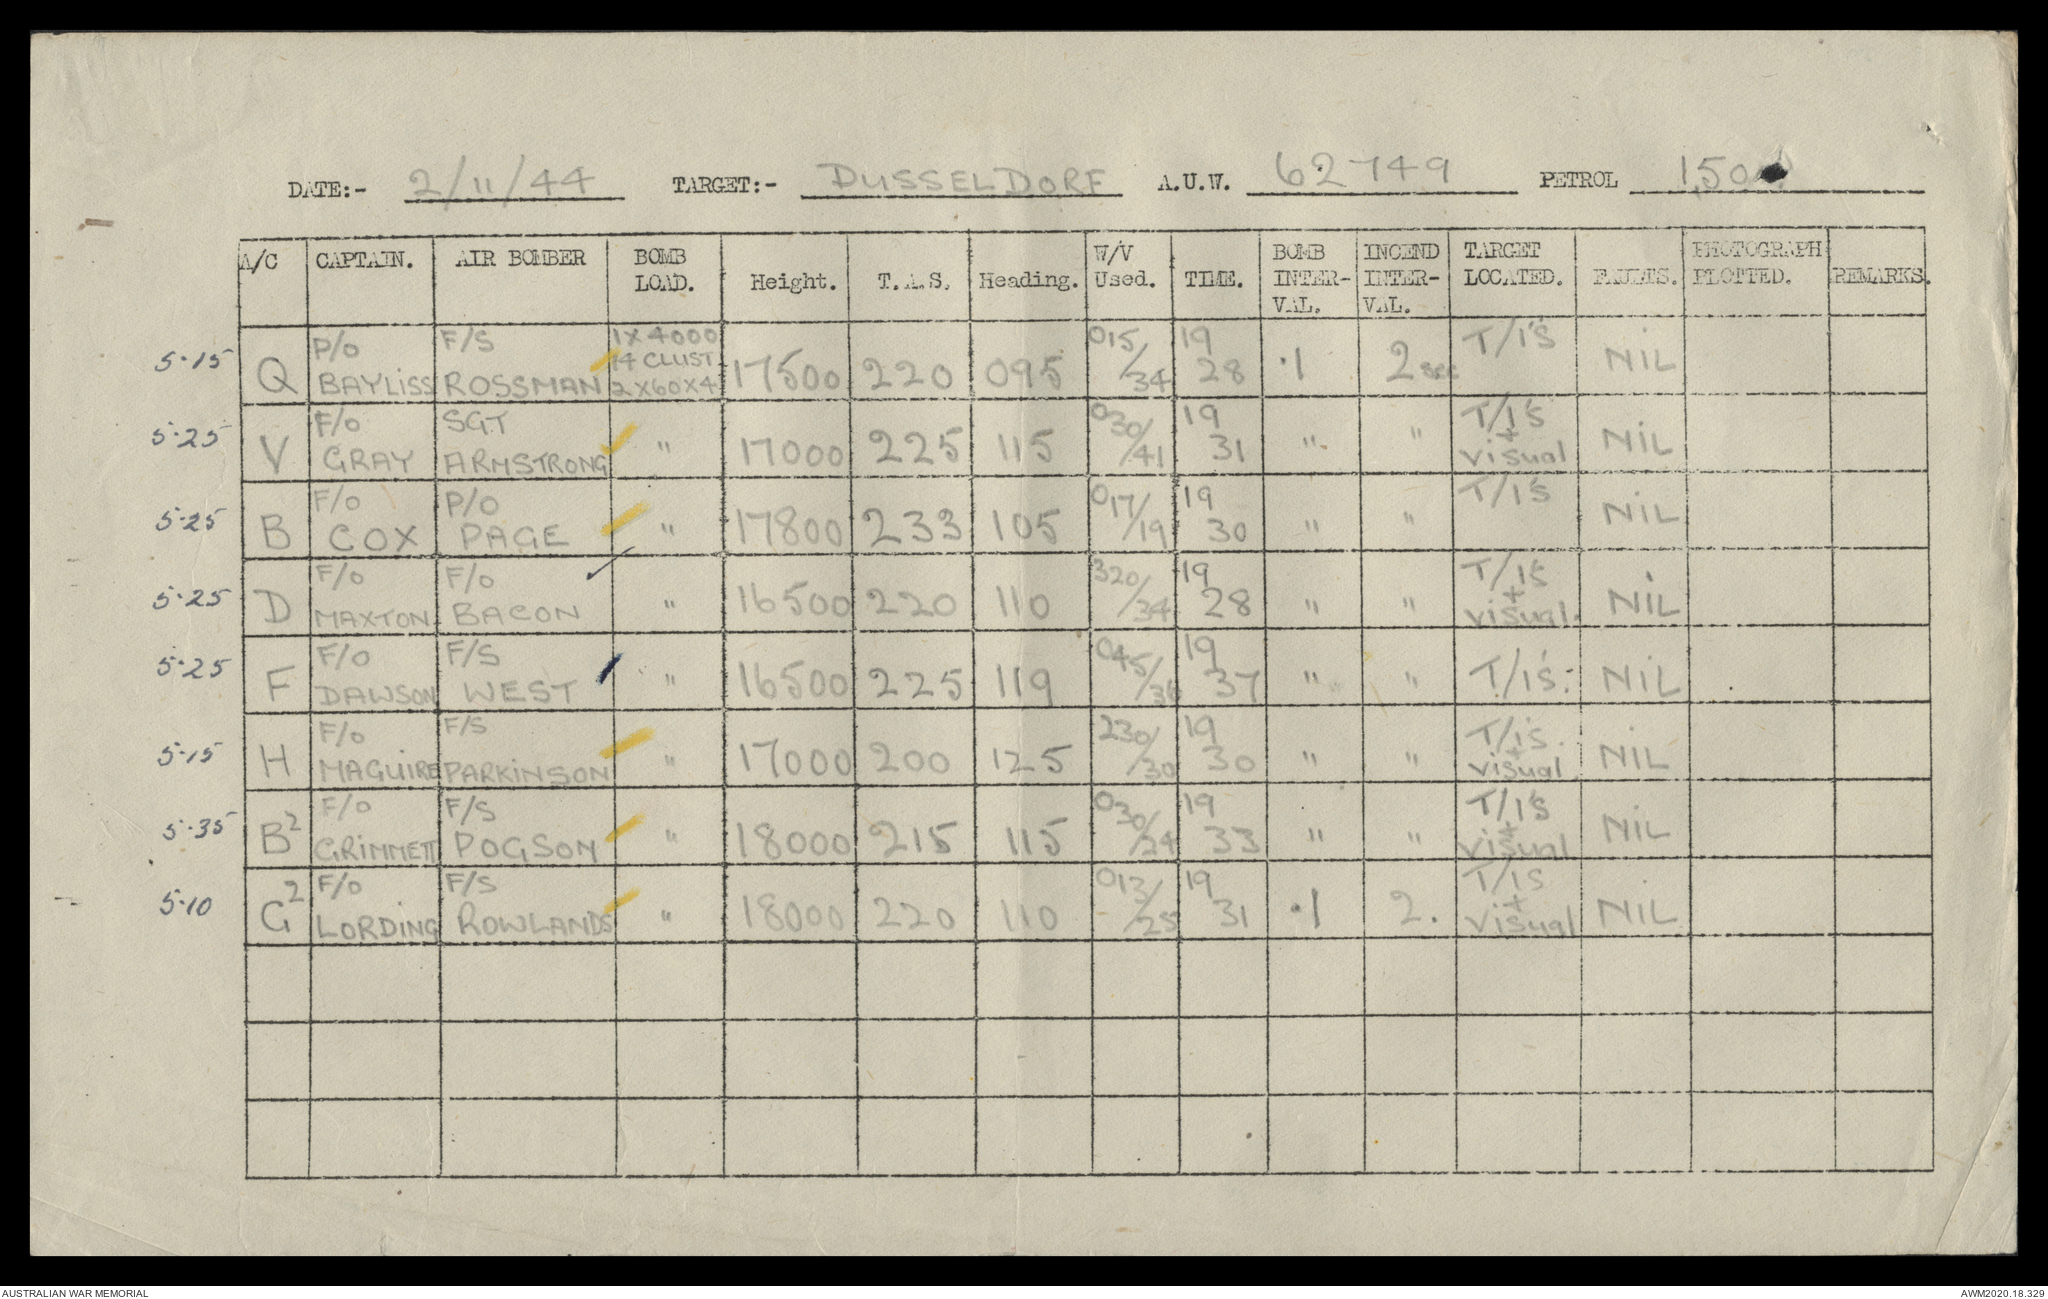 DATE:- 2/11/44 TARGET:- DUSSELDORF A.U.W. 62749 PETROL 1,50
A/C CAPTAIN. AIR BOMBER BOMB LOAD. Height. T.A.S. Heading. W/V Used. TIME. BOMB INTER-VAL. INCEND INTER-VAL. TARGET LOCATED. FAULTS. PHOTOGRAPH PLOTTED. REMARKS.
5·15 Q P/O BAYLISS F/S ROSSMAN 1X4000 14 CLUST 2X60X4 17500 220 095 015/34 19 28 ·1 2 sec T/I'S NIL
5·25 V F/O GRAY SGT ARMSTRONG " 17000 225 115 030/41 19 31 " " T/I'S + visual NIL
5·25 B F/O COX P/O PAGE " 17800 233 105 017/19 19 30 " " T/I'S NIL
5·25 D F/O MAXTON F/O BACON " 16500 220 110 320/34 19 28 " " T/I'S + visual. NIL
5·25 F F/O DAWSON F/S WEST " 16500 225 119 045/36 19 37 " " T/I'S. NIL
5·15 H F/O MAGUIRE F/S PARKINSON " 17000 200 125 230/30 19 30 " " T/I'S. + visual NIL
5·35 B2 F/O GRIMMETT F/S POGSON " 18000 215 115 030/24 19 33 " " T/I'S + visual NIL
5·10 G2 F/O LORDING F/S ROWLANDS " 18000 220 110 013/25 19 31 ·1 2. T/IS + visual NIL
AUSTRALIAN WAR MEMORIAL AWM2020.18.329